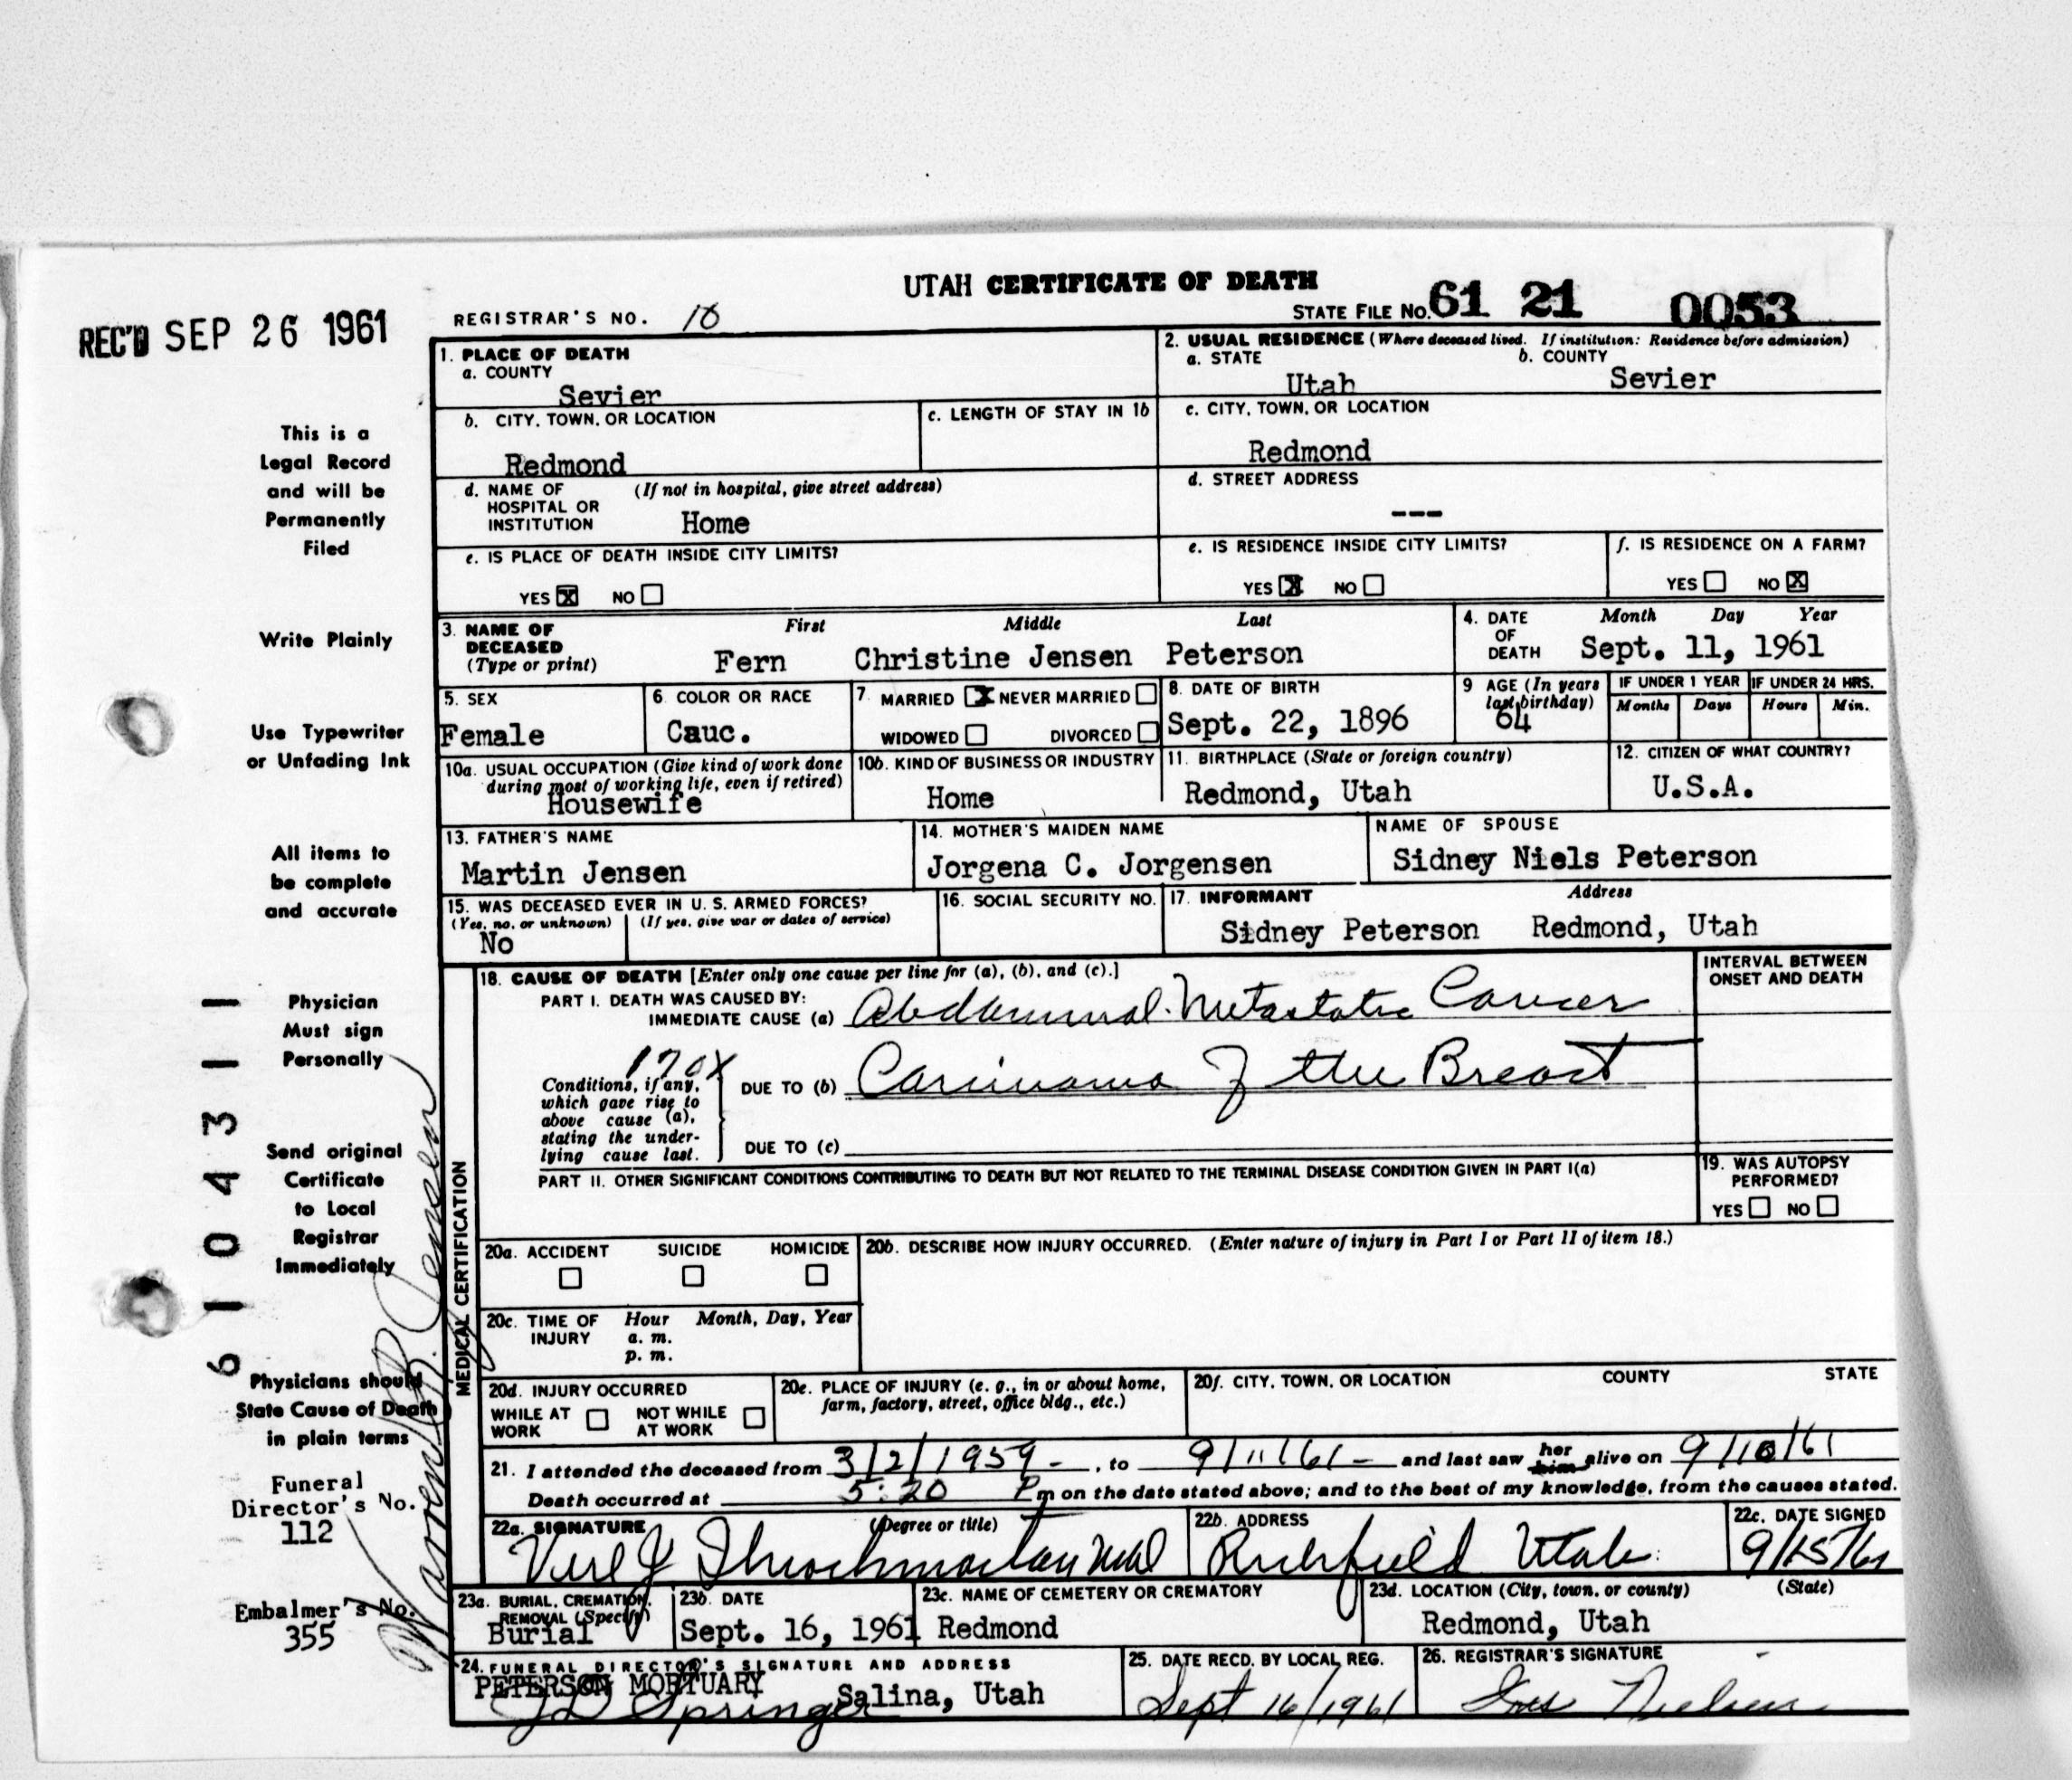 UTAH CERTIFICATE OF DEATH
REC'D SEP 26 1961
REGISTRAR'S NO. 18
STATE FILE NO. 61 21 0053
1. PLACE OF DEATH
a. COUNTY
Sevier
2. USUAL RESIDENCE (Where deceased lived. If institution: Residence before admission)
a. STATE b. COUNTY
Utah Sevier
b. CITY, TOWN, OR LOCATION
Redmond
c. LENGTH OF STAY IN 1b
c. CITY, TOWN, OR LOCATION
Redmond
d. NAME OF (If not in hospital, give street address)
HOSPITAL OR
INSTITUTION Home
d. STREET ADDRESS
---
e. IS PLACE OF DEATH INSIDE CITY LIMITS?
YES X NO
e. IS RESIDENCE INSIDE CITY LIMITS?
YES X NO
f. IS RESIDENCE ON A FARM?
YES NO X
3. NAME OF DECEASED (Type or print)
First Middle Last
Fern Christine Jensen Peterson
4. DATE OF DEATH
Month Day Year
Sept. 11, 1961
5. SEX
Female
6. COLOR OR RACE
Cauc.
7. MARRIED X NEVER MARRIED
WIDOWED DIVORCED
8. DATE OF BIRTH
Sept. 22, 1896
9 AGE (In years last birthday)
64
IF UNDER 1 YEAR IF UNDER 24 HRS.
Months Days Hours Min.
10a. USUAL OCCUPATION (Give kind of work done
during most of working life, even if retired)
Housewife
10b. KIND OF BUSINESS OR INDUSTRY
Home
11. BIRTHPLACE (State or foreign country)
Redmond, Utah
12. CITIZEN OF WHAT COUNTRY?
U.S.A.
13. FATHER'S NAME
Martin Jensen
14. MOTHER'S MAIDEN NAME
Jorgena C. Jorgensen
NAME OF SPOUSE
Sidney Niels Peterson
15. WAS DECEASED EVER IN U. S. ARMED FORCES?
(Yes, no, or unknown) (If yes, give war or dates of service)
No
16. SOCIAL SECURITY NO.
17. INFORMANT Address
Sidney Peterson Redmond, Utah
18. CAUSE OF DEATH [Enter only one cause per line for (a), (b), and (c).]
INTERVAL BETWEEN
ONSET AND DEATH
PART I. DEATH WAS CAUSED BY:
IMMEDIATE CAUSE (a) Abdominal Metastatic Cancer
170X
Conditions, if any,
which gave rise to
above cause (a),
stating the under-
lying cause last.
DUE TO (b) Carcinoma of the Breast
DUE TO (c)
PART II. OTHER SIGNIFICANT CONDITIONS CONTRIBUTING TO DEATH BUT NOT RELATED TO THE TERMINAL DISEASE CONDITION GIVEN IN PART I(a)
19. WAS AUTOPSY
PERFORMED?
YES NO
MEDICAL CERTIFICATION
20a. ACCIDENT SUICIDE HOMICIDE
20b. DESCRIBE HOW INJURY OCCURRED. (Enter nature of injury in Part I or Part II of item 18.)
20c. TIME OF INJURY Hour Month, Day, Year
a. m.
p. m.
20d. INJURY OCCURRED
WHILE AT WORK NOT WHILE AT WORK
20e. PLACE OF INJURY (e. g., in or about home,
farm, factory, street, office bldg., etc.)
20f. CITY, TOWN, OR LOCATION COUNTY STATE
21. I attended the deceased from 3/2/1959 - , to 9/11/61 - and last saw her him alive on 9/10/61
Death occurred at 5:20 Pm on the date stated above; and to the best of my knowledge, from the causes stated.
22a. SIGNATURE (Degree or title)
Verl J Throckmorton MD
22b. ADDRESS
Richfield Utah
22c. DATE SIGNED
9/15/61
23a. BURIAL, CREMATION,
REMOVAL (Specify)
Burial
23b. DATE
Sept. 16, 1961
23c. NAME OF CEMETERY OR CREMATORY
Redmond
23d. LOCATION (City, town, or county) (State)
Redmond, Utah
24. FUNERAL DIRECTOR'S SIGNATURE AND ADDRESS
PETERSON MORTUARY Salina, Utah
Springer
25. DATE RECD. BY LOCAL REG.
Sept 16/1961
26. REGISTRAR'S SIGNATURE
Nielsen
This is a
Legal Record
and will be
Permanently
Filed
Write Plainly
Use Typewriter
or Unfading Ink
All items to
be complete
and accurate
Physician
Must sign
Personally
Send original
Certificate
to Local
Registrar
Immediately
Physicians should
State Cause of Death
in plain terms
Funeral
Director's No.
112
Embalmer's No.
355
6104311
Jensen